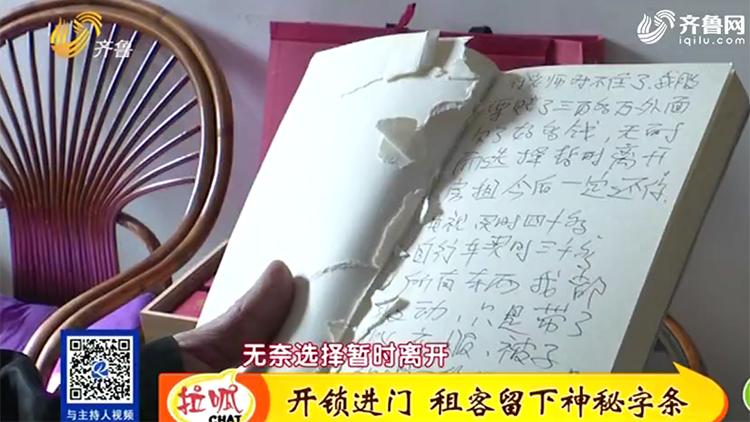 齐鲁
齐鲁网
iqilu.com
老师对不住了.我股
票赔了三百多万外面
欠了好多钱,无奈
而选择暂时离开
房租今后一定还你
电视买时四千多
自行车买时三千多
所有东西我都
没动,只是带了
衣服、被子
无奈选择暂时离开
与主持人视频
拉呱
CHAT
开锁进门 租客留下神秘字条